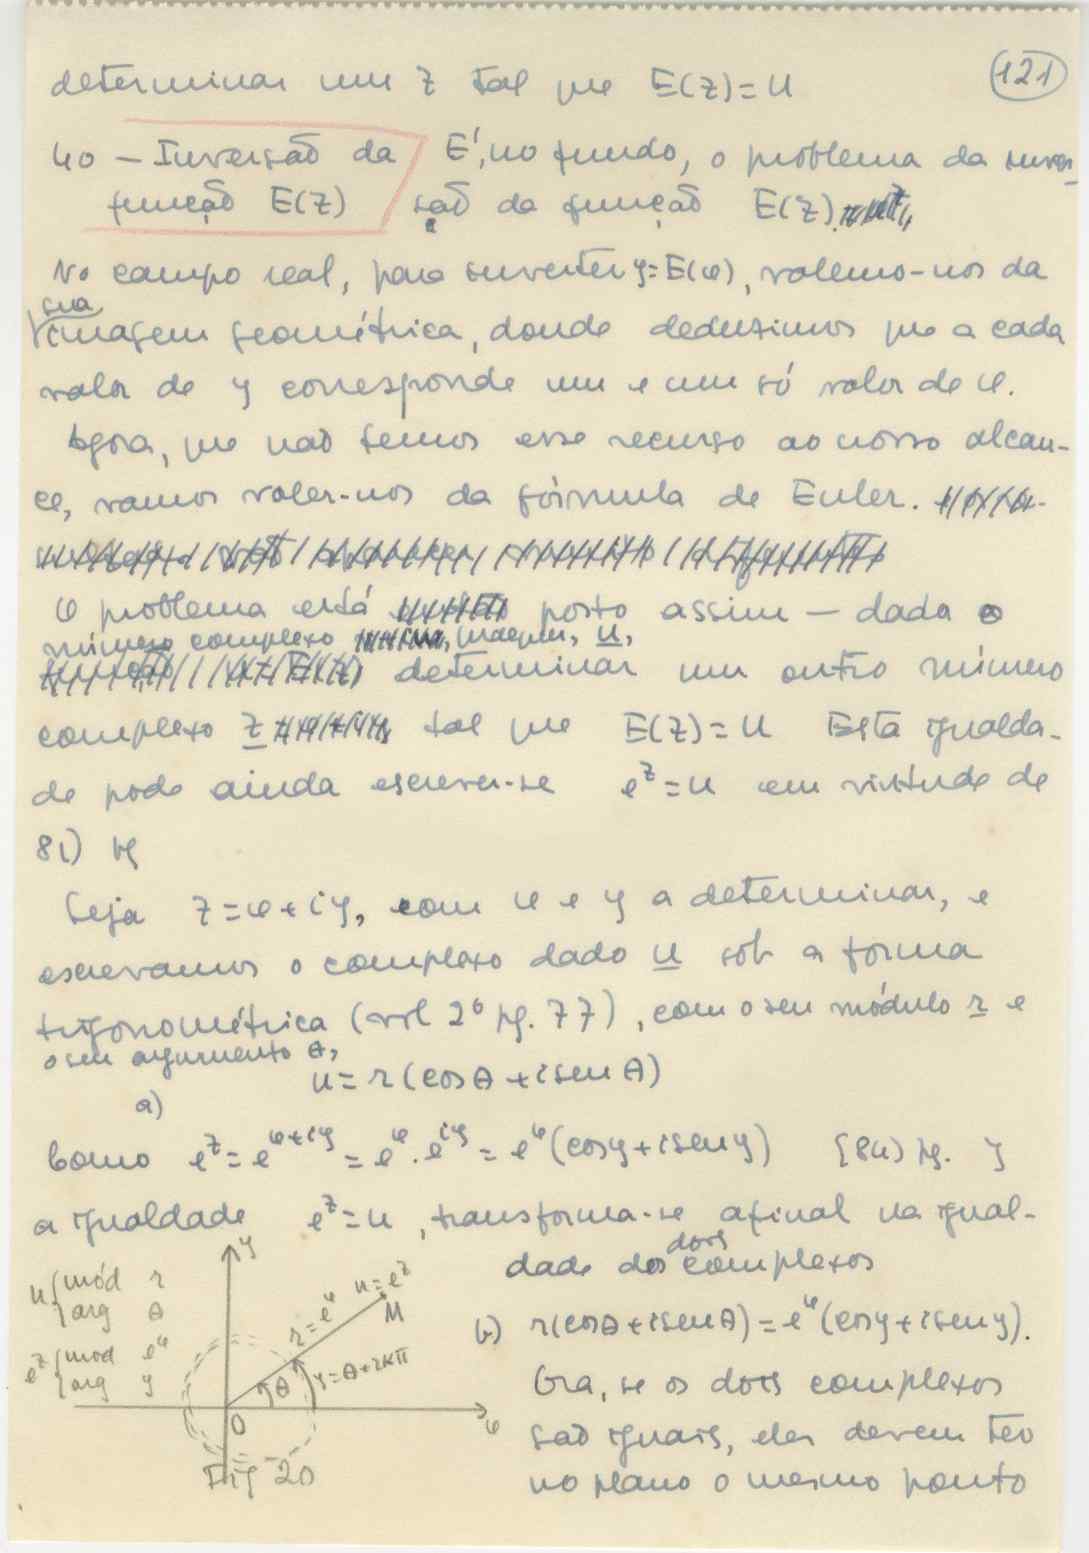 121
determinar um z tal que E(z)=u
40 — Inversão da função E(z)
É, no fundo, o problema da inver-
são da função E(z).
No campo real, para inverter y=E(x), valemo-nos da
sua
imagem geométrica, donde deduzimos que a cada
valor de y corresponde um e um só valor de x.
Agora, que não temos esse recurso ao nosso alcan-
ce, vamos valer-nos da fórmula de Euler.
O problema está posto assim — dado o
número complexo u,
determinar um outro número
complexo z tal que E(z)=u Esta igualda-
de pode ainda escrever-se e^z=u em virtude de
81) pg
Seja z=x+iy, com x e y a determinar, e
escrevamos o complexo dado u sob a forma
trigonométrica (vol 2º pg. 77), com o seu módulo r e
o seu argumento θ,
a) u=r(cosθ+isenθ)
Como e^z=e^{x+iy}=e^x.e^{iy}=e^x(cosy+iseny) [84) pg. ]
a igualdade e^z=u, transforma-se afinal na igual-
dade dos dois complexos
b) r(cosθ+isenθ)=e^x(cosy+iseny).
Ora, se os dois complexos
são iguais, eles devem ter
no plano o mesmo ponto
y
u { mód r
arg θ
e^z { mod e^x
arg y
r=e^x
u=e^z
M
θ
y=θ+2kπ
O
x
Fig-20